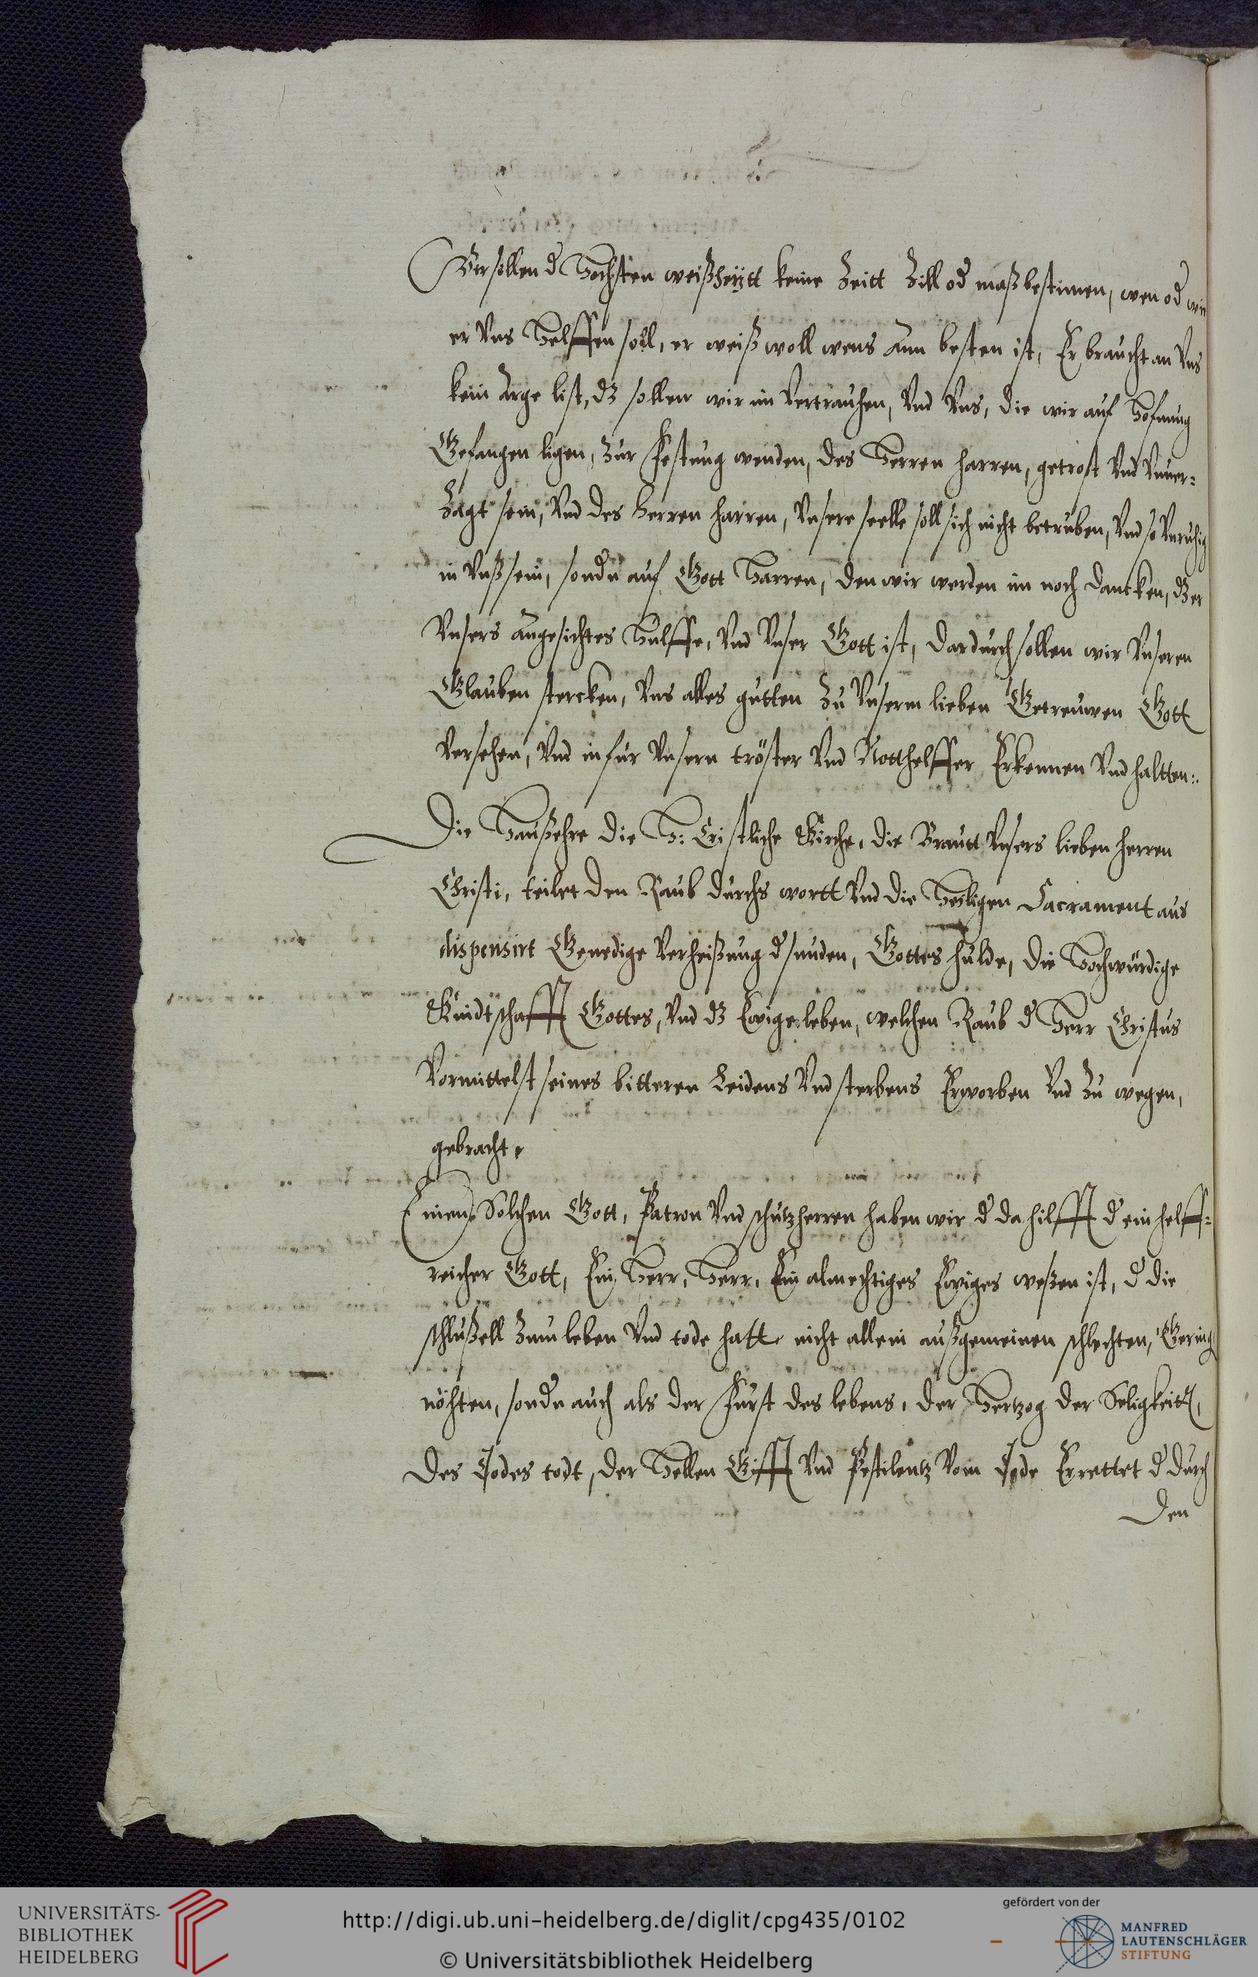 Wir sollen d Hochsten weißheÿtt keine Zeitt Zill od maß bestimen, wen od wie
er Vns Helffen soll, er weiß woll wens Am besten ist, Er braucht an Vns
kein Arge list, dz sollen wir im Vertrauhen, Vnd Vns, die wir auf Hofnung
Gefangen ligen, Zur Festung wenden, des Herren harren, getrost Vnd Vnuer-
Zagt sein, Vnd des Herren harren, Vnsere seelle soll sich nicht betruben, Vnd so Vnruhig
in Vnß sein, sondn auf Gott Harren, den wir werden im noch dancken, dz er
Vnsers Angesichtes Hulffe, Vnd Vnser Gott ist, dardurch sollen wir Vnseren
Glauben stercken, Vns alles gutten Zu Vnserm lieben Getreuwen Gott
Versehen, Vnd in fur Vnsern tröster Vnd Notthelffer Erkennen Vnd haltten:.
Die Haußehre die H: Cristliche Kirche, die Brautt Vnsers lieben Herren
Christi, teilet den Raub durchs wortt Vnd die Heiligen Sacrament aus
dispensirt Genedige Verheißung d sunden, Gottes hulde, die Hochwürdige
Kindtschafft Gottes, Vnd dz Ewige leben, welchen Raub d Herr Christus
Vormittelst seines bitteren Leidens Vnd sterbens Erworben Vnd Zu wegen,
gebracht.
Einen Solchen Gott, Patron Vnd schutzherren haben wir d da hilfft d ein helff-
reicher Gott, Ein Herr, Herr, Ein almechtiges Ewiges weßen ist, d die
schlußell Zum leben Vnd tode hatt nicht allein auß gemeinen schlechten, Gering
nöhten, sondn auch als der Furst des lebens, der Hertzog der Seligkeitt,
des Todes todt, der Hellen Gifft Vnd Pestilentz Vom Tode Errettet d durch
den
UNIVERSITÄTS-
BIBLIOTHEK
HEIDELBERG
http://digi.ub.uni-heidelberg.de/diglit/cpg435/0102
© Universitätsbibliothek Heidelberg
gefördert von der
MANFRED
LAUTENSCHLÄGER
STIFTUNG